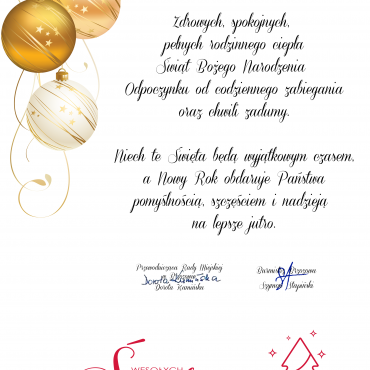 Zdrowych, spokojnych,
pełnych rodzinnego ciepła
Świąt Bożego Narodzenia
Odpoczynku od codziennego zabiegania
oraz chwili zadumy.
Niech te Święta będą wyjątkowym czasem,
a Nowy Rok obdaruje Państwa
pomyślnością, szczęściem i nadzieją
na lepsze jutro.
Przewodnicząca Rady Miejskiej
Dorota Kamińska
Burmistrz Brzozowa
Szymon Stapiński
WESOŁYCH